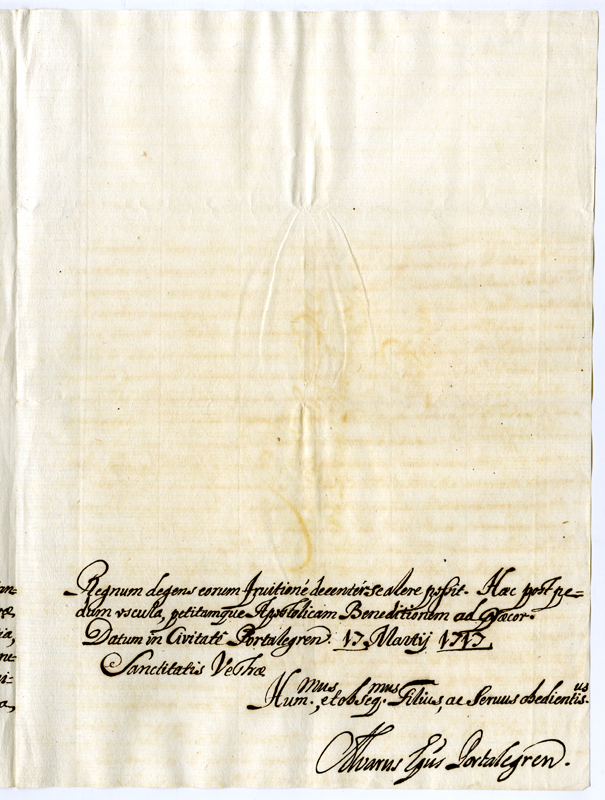 Regnum degens eorum fruitiené decenter se alere possit. Hæc post pe=
dum vscula, petitamque Apostolicam Beneditionem adprecor.
Datum in Civitate Portalegren. 17. Martij 1717.
Sanctitatis Vestræ
Hum.mus, et obseq.mus Filius, ac Seruus obedientis.us
Alvarus Epus Portalegren.